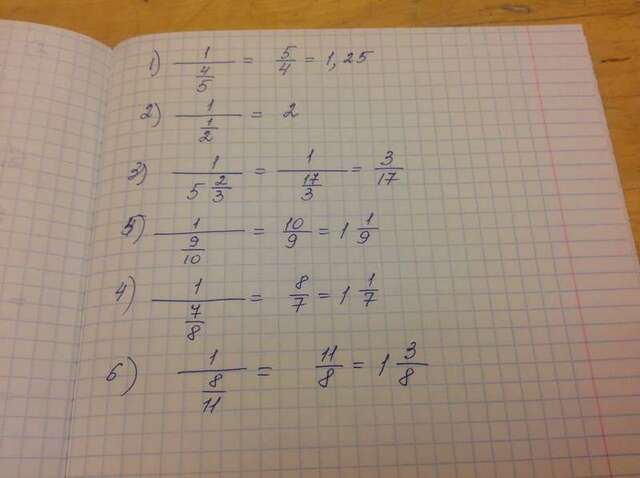 1) 1/(4/5) = 5/4 = 1,25
2) 1/(1/2) = 2
3) 1/(5 2/3) = 1/(17/3) = 3/17
5) 1/(9/10) = 10/9 = 1 1/9
4) 1/(7/8) = 8/7 = 1 1/7
6) 1/(8/11) = 11/8 = 1 3/8